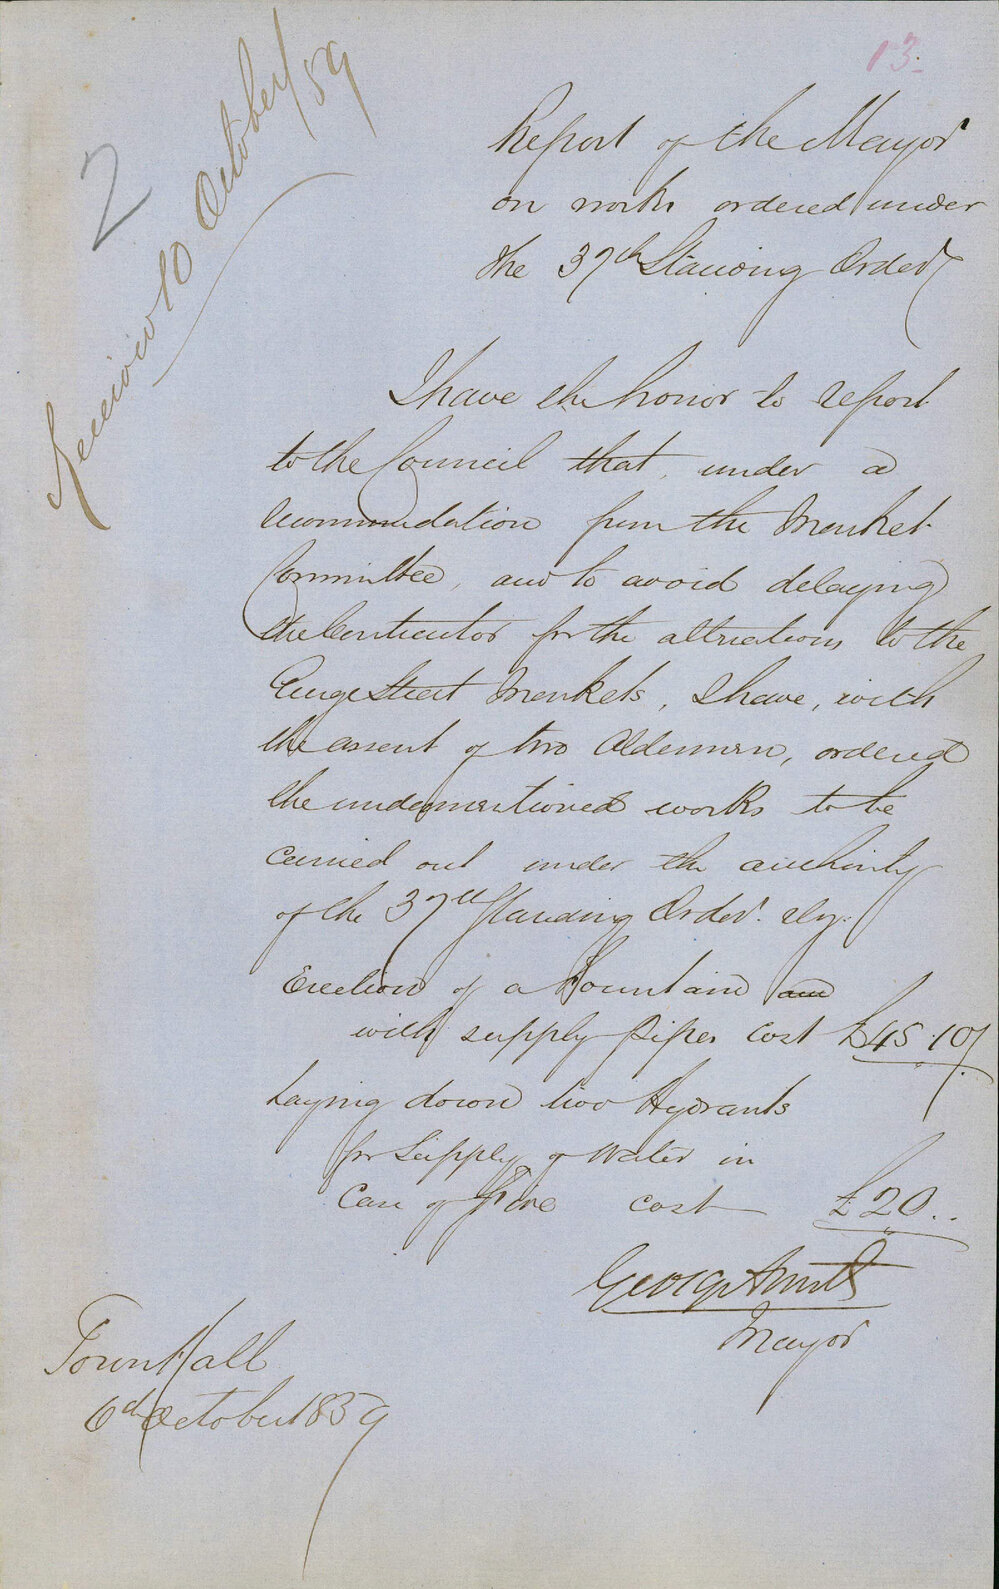 13.
2
Received 10 October/59
Report of the Mayor
on works ordered under
the 37th Standing Order
I have the honor to report
to the Council that, under a
recommendation from the Market
Committee, and to avoid delaying
the Contractor for the alterations to the
George Street Markets, I have, with
the assent of two Aldermen, ordered
the undermentioned works to be
carried out under the authority
of the 37th Standing Order. viz:
Erection of a Fountain and
with supply pipes cost £45.10/
Laying down two Hydrants
for Supply of Water in
Case of Fire cost £20..
George Smith
Mayor
Town Hall
6th October 1859